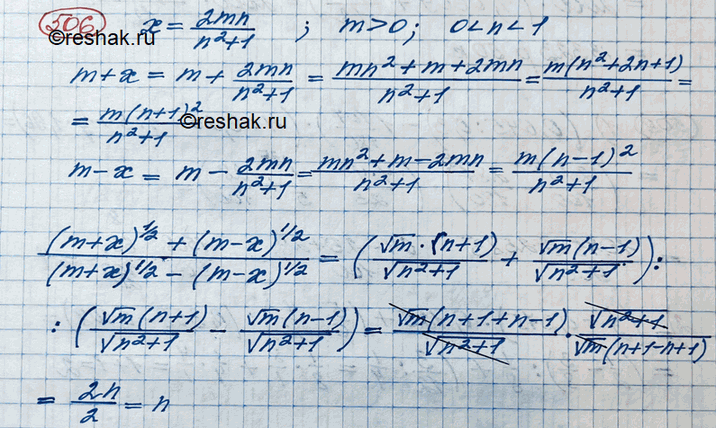 506 x = 2mn/(n²+1) ; m>0; 0<n<1
©reshak.ru
m+x = m + 2mn/(n²+1) = (mn²+m+2mn)/(n²+1) = m(n²+2n+1)/(n²+1) =
= m(n+1)²/(n²+1)
©reshak.ru
m-x = m - 2mn/(n²+1) = (mn²+m-2mn)/(n²+1) = m(n-1)²/(n²+1)
((m+x)^1/2 + (m-x)^1/2)/((m+x)^1/2 - (m-x)^1/2) = (√m·(n+1)/√(n²+1) + √m(n-1)/√(n²+1)):
:(√m(n+1)/√(n²+1) - √m(n-1)/√(n²+1)) = √m(n+1+n-1)/√(n²+1) · √(n²+1)/(√m(n+1-n+1))
= 2n/2 = n